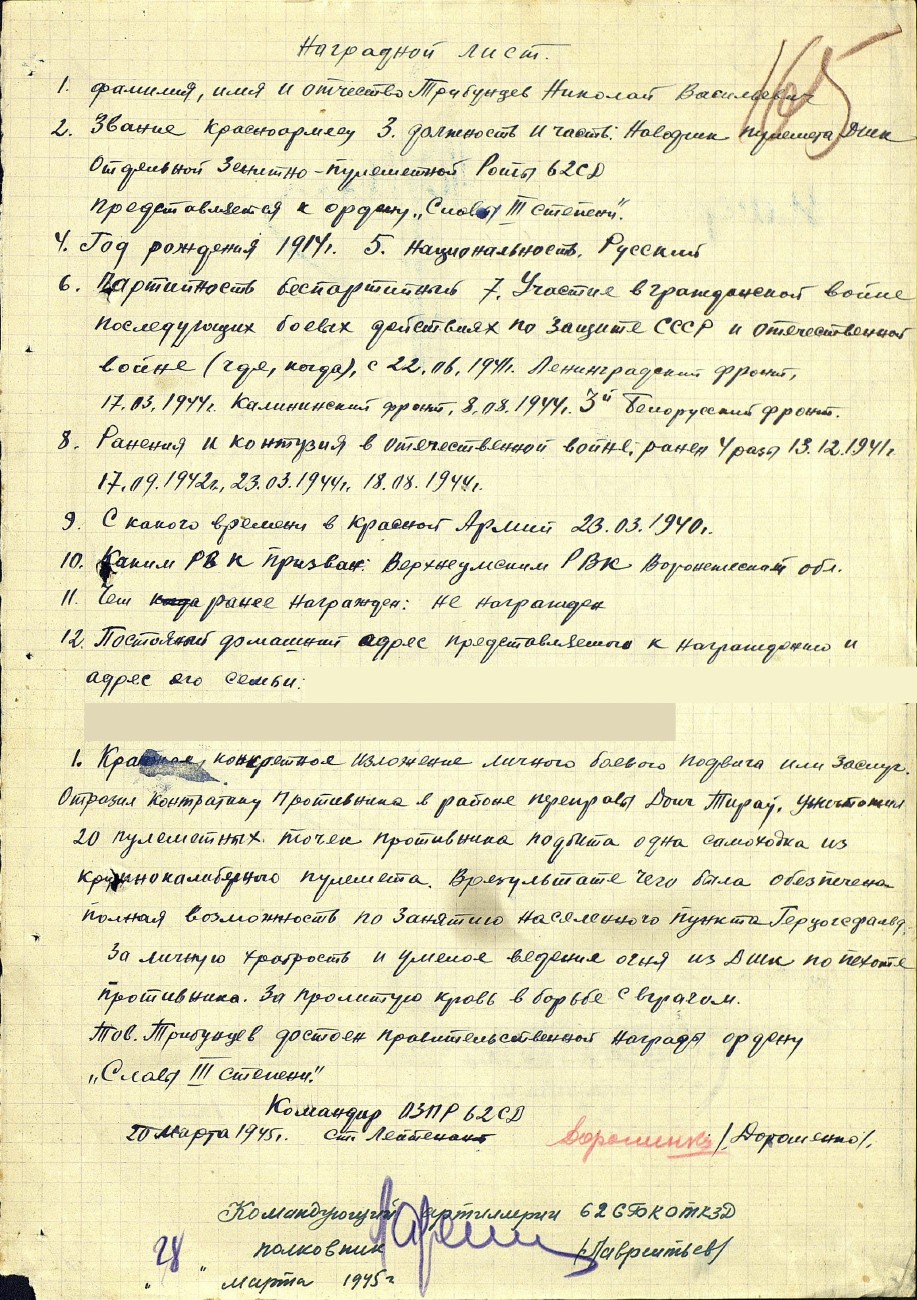 Наградной лист.
165
1. фамилия, имя и отчество Трибунцев Николай Васильевич
2. Звание Красноармеец 3. должность и часть: Наводчик пулемета ДШК
Отдельной Зенитно-пулеметной Роты 62СД
представляется к ордену „Славы III степени".
4. Год рождения 1914г. 5. Национальность. Русский
6. Партийность беспартийный 7. Участие в гражданской войне
последующих боевых действиях по защите СССР и отечественной
войне (где, когда), с 22.06.1941г. Ленинградский фронт,
17.03.1944г. Калининский фронт, 8.08.1944г. 3й Белорусский фронт.
8. Ранения и контузия в отечественной войне; ранен 4 раза 13.12.1941г.
17.09.1942г., 23.03.1944г. 18.08.1944г.
9. С какого времени в Красной Армий 23.03.1940г.
10. Каким РВК призван: РВК обл.
11. Чем ранее награжден: не награжден
12. Постояный домашний адрес представляемого к награждению и
адрес его семьи:
1. Краткое, конкретное изложение личного боевого подвига или заслуг.
Отразил контратаку противника в районе переправы Дойч Тирау, уничтожил
20 пулеметных точек противника подбита одна самоходка из
крупнокалиберного пулемета. Врезультате чего была обеспечена
полная возможность по занятию населенного пункта
За личную храбрость и умелое ведения огня из ДШК по пехоте
противника. За пролитую кровь в борьбе с врагом.
Тов. Трибунцев достоен правительственной награды ордену
„Славы III степени."
Командир ОЗПР 62СД
20 марта 1945г. ст Лейтенант Дорошенко /Дорошенко/.
Командующий артиллерии 62СБКОТКЗД
полковник /Лаврентьев/
28
" " марта 1945г